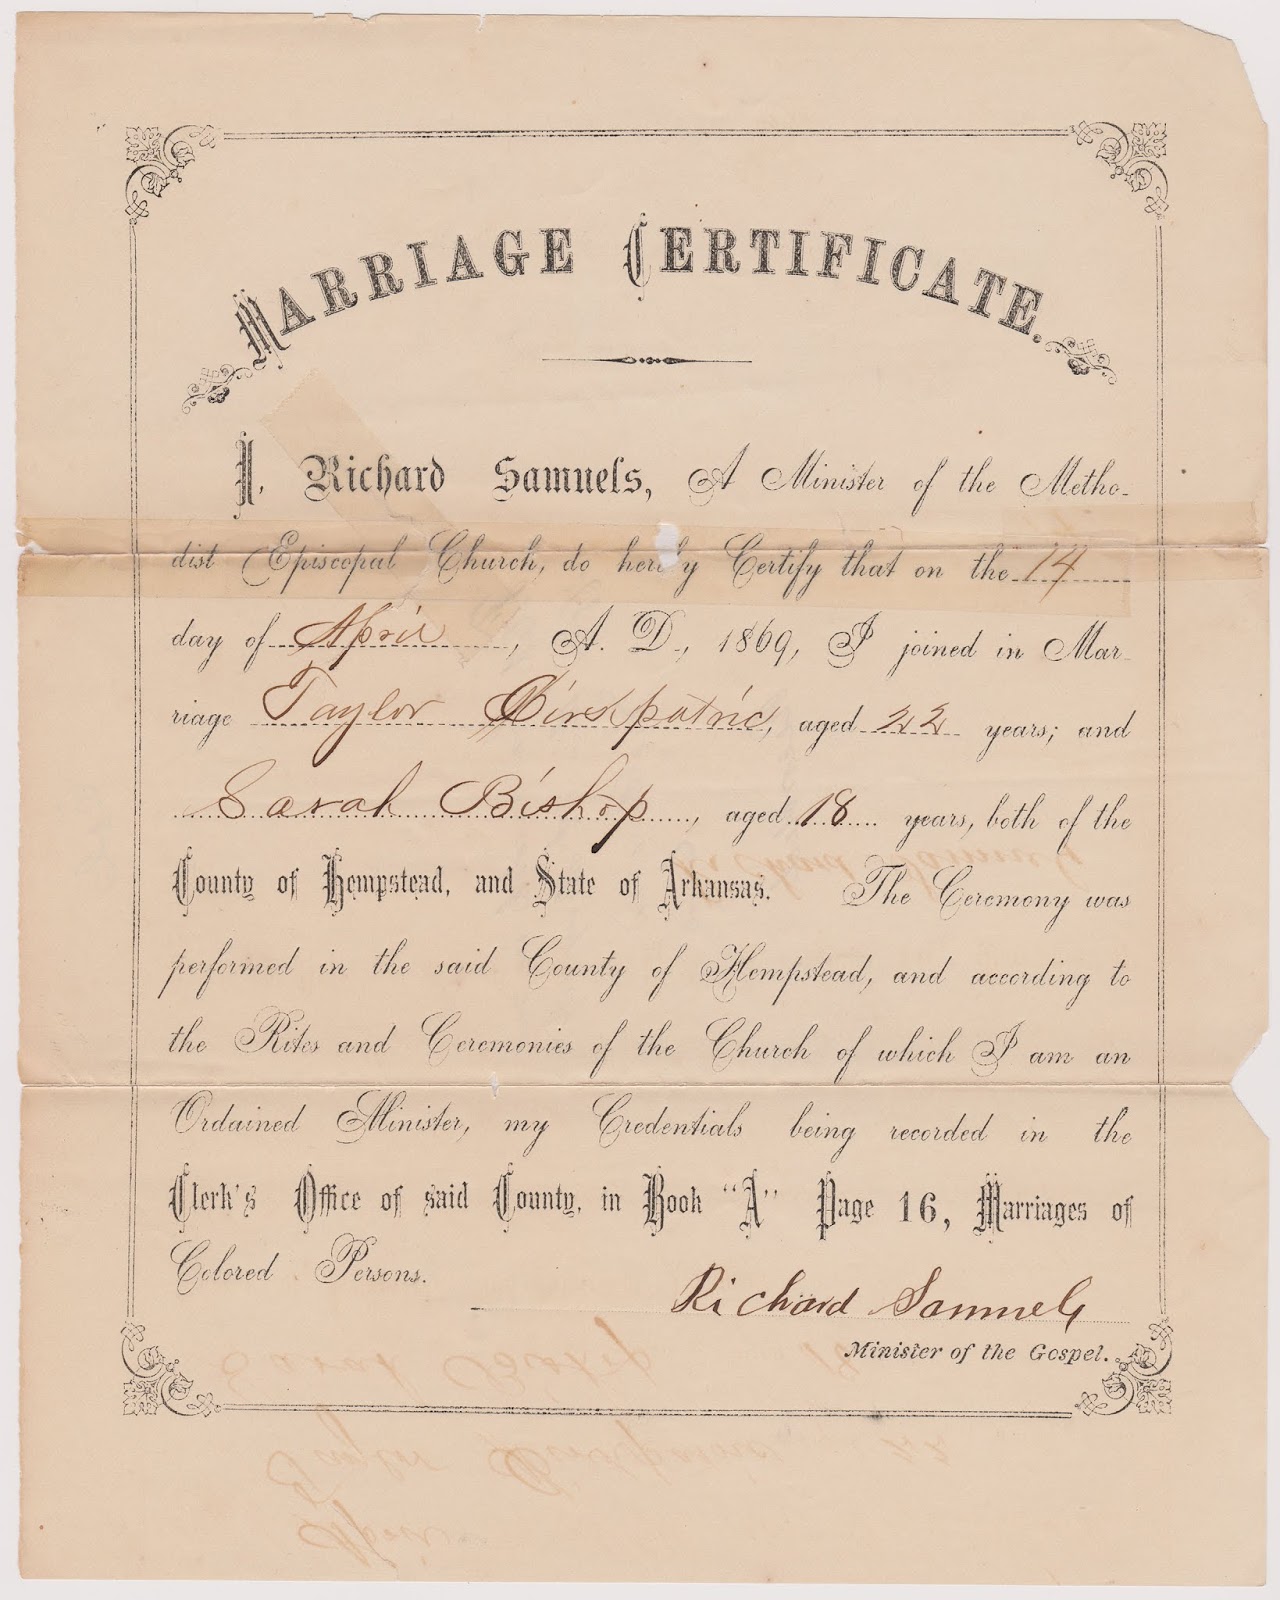 MARRIAGE CERTIFICATE.
I, Richard Samuels, A Minister of the Metho-
dist Episcopal Church, do hereby Certify that on the 14
day of April, A. D., 1869, I joined in Mar-
riage Taylor Kirkpatric, aged 22 years; and
Sarah Bishop, aged 18 years, both of the
County of Hempstead, and State of Arkansas. The Ceremony was
performed in the said County of Hempstead, and according to
the Rites and Ceremonies of the Church of which I am an
Ordained Minister, my Credentials being recorded in the
Clerk's Office of said County, in Book "A" Page 16, Marriages of
Colored Persons.
Richard Samuels
Minister of the Gospel.